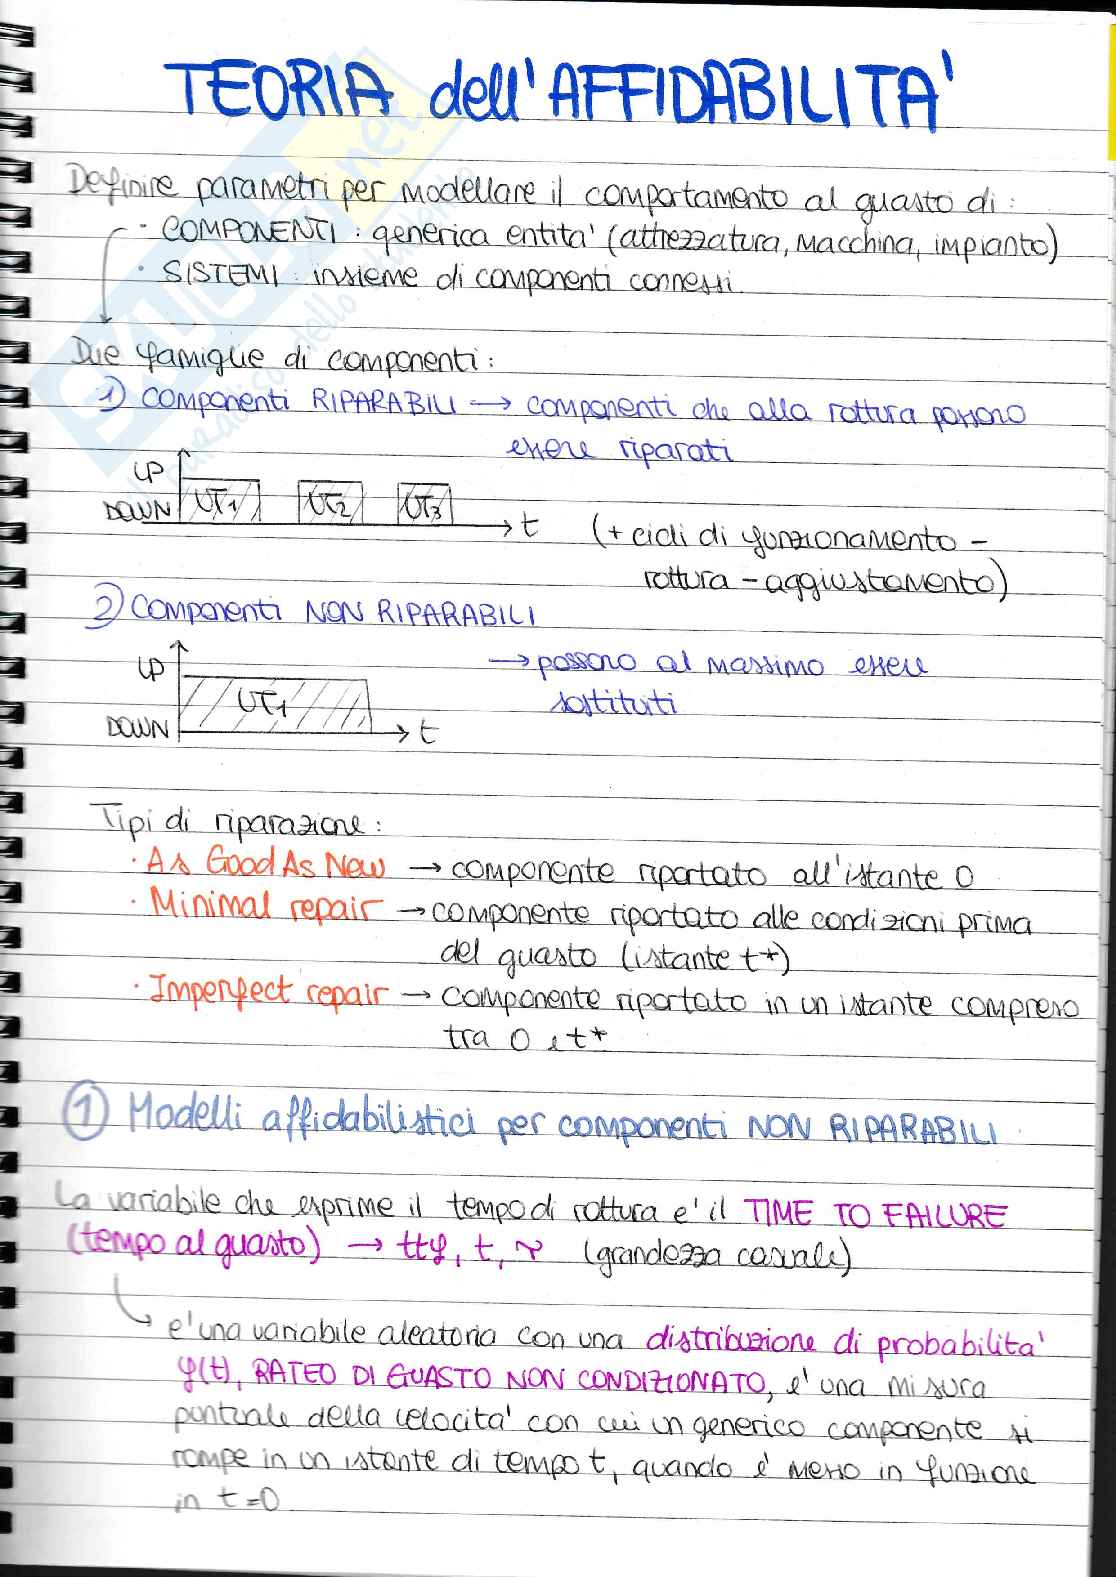 TEORIA dell'AFFIDABILITA'
Definire parametri per modellare il comportamento al guasto di:
· COMPONENTI: generica entita' (attrezzatura, macchina, impianto)
· SISTEMI: insieme di componenti connessi
Due famiglie di componenti:
1) componenti RIPARABILI → componenti che alla rottura possono
essere riparati
UP
DOWN UT1 UT2 UT3 t (+ cicli di funzionamento -
rottura - aggiustamento)
2) componenti NON RIPARABILI
UP → possono al massimo essere
UT1 sostituiti
DOWN t
Tipi di riparazione:
· As Good As New → componente riportato all'istante 0
· Minimal repair → componente riportato alle condizioni prima
del guasto (istante t*)
· Imperfect repair → componente riportato in un istante compreso
tra 0 e t*
1 Modelli affidabilistici per componenti NON RIPARABILI
La variabile che esprime il tempo di rottura e' il TIME TO FAILURE
(tempo al guasto) → ttf, t, τ (grandezza casuale)
e' una variabile aleatoria con una distribuzione di probabilita'
f(t), RATEO DI GUASTO NON CONDIZIONATO, e' una misura
puntuale della velocita' con cui un generico componente si
rompe in un istante di tempo t, quando e' messo in funzione
in t=0